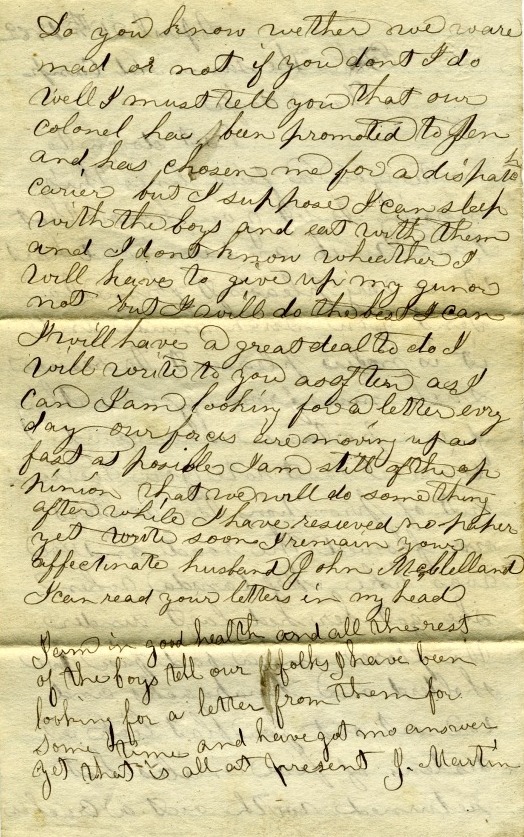 Do you know wether we ware
mad or not if you dont I do
well I must tell you that our
colonel has been promoted to Jen
and has chosen me for a dispatch
carier but I suppose I can sleep
with the boys and eat with them
and I dont know wheather I
will have to give up my gun or
not but I will do the best I can
I will have a great deal to do I
will write to you as often as I
can I am looking for a letter evry
day our forces are moving up as
fast as posible I am still of the op
pinion that we will do something
after while I have resieved no paper
yet write soon I remain your
affectinate husband John McClelland
I can read your letters in my head
I am in good health and all the rest
of the boys tell our folks I have been
looking for a letter from them for
some time and have got no answer
yet that is all at present J. Martin